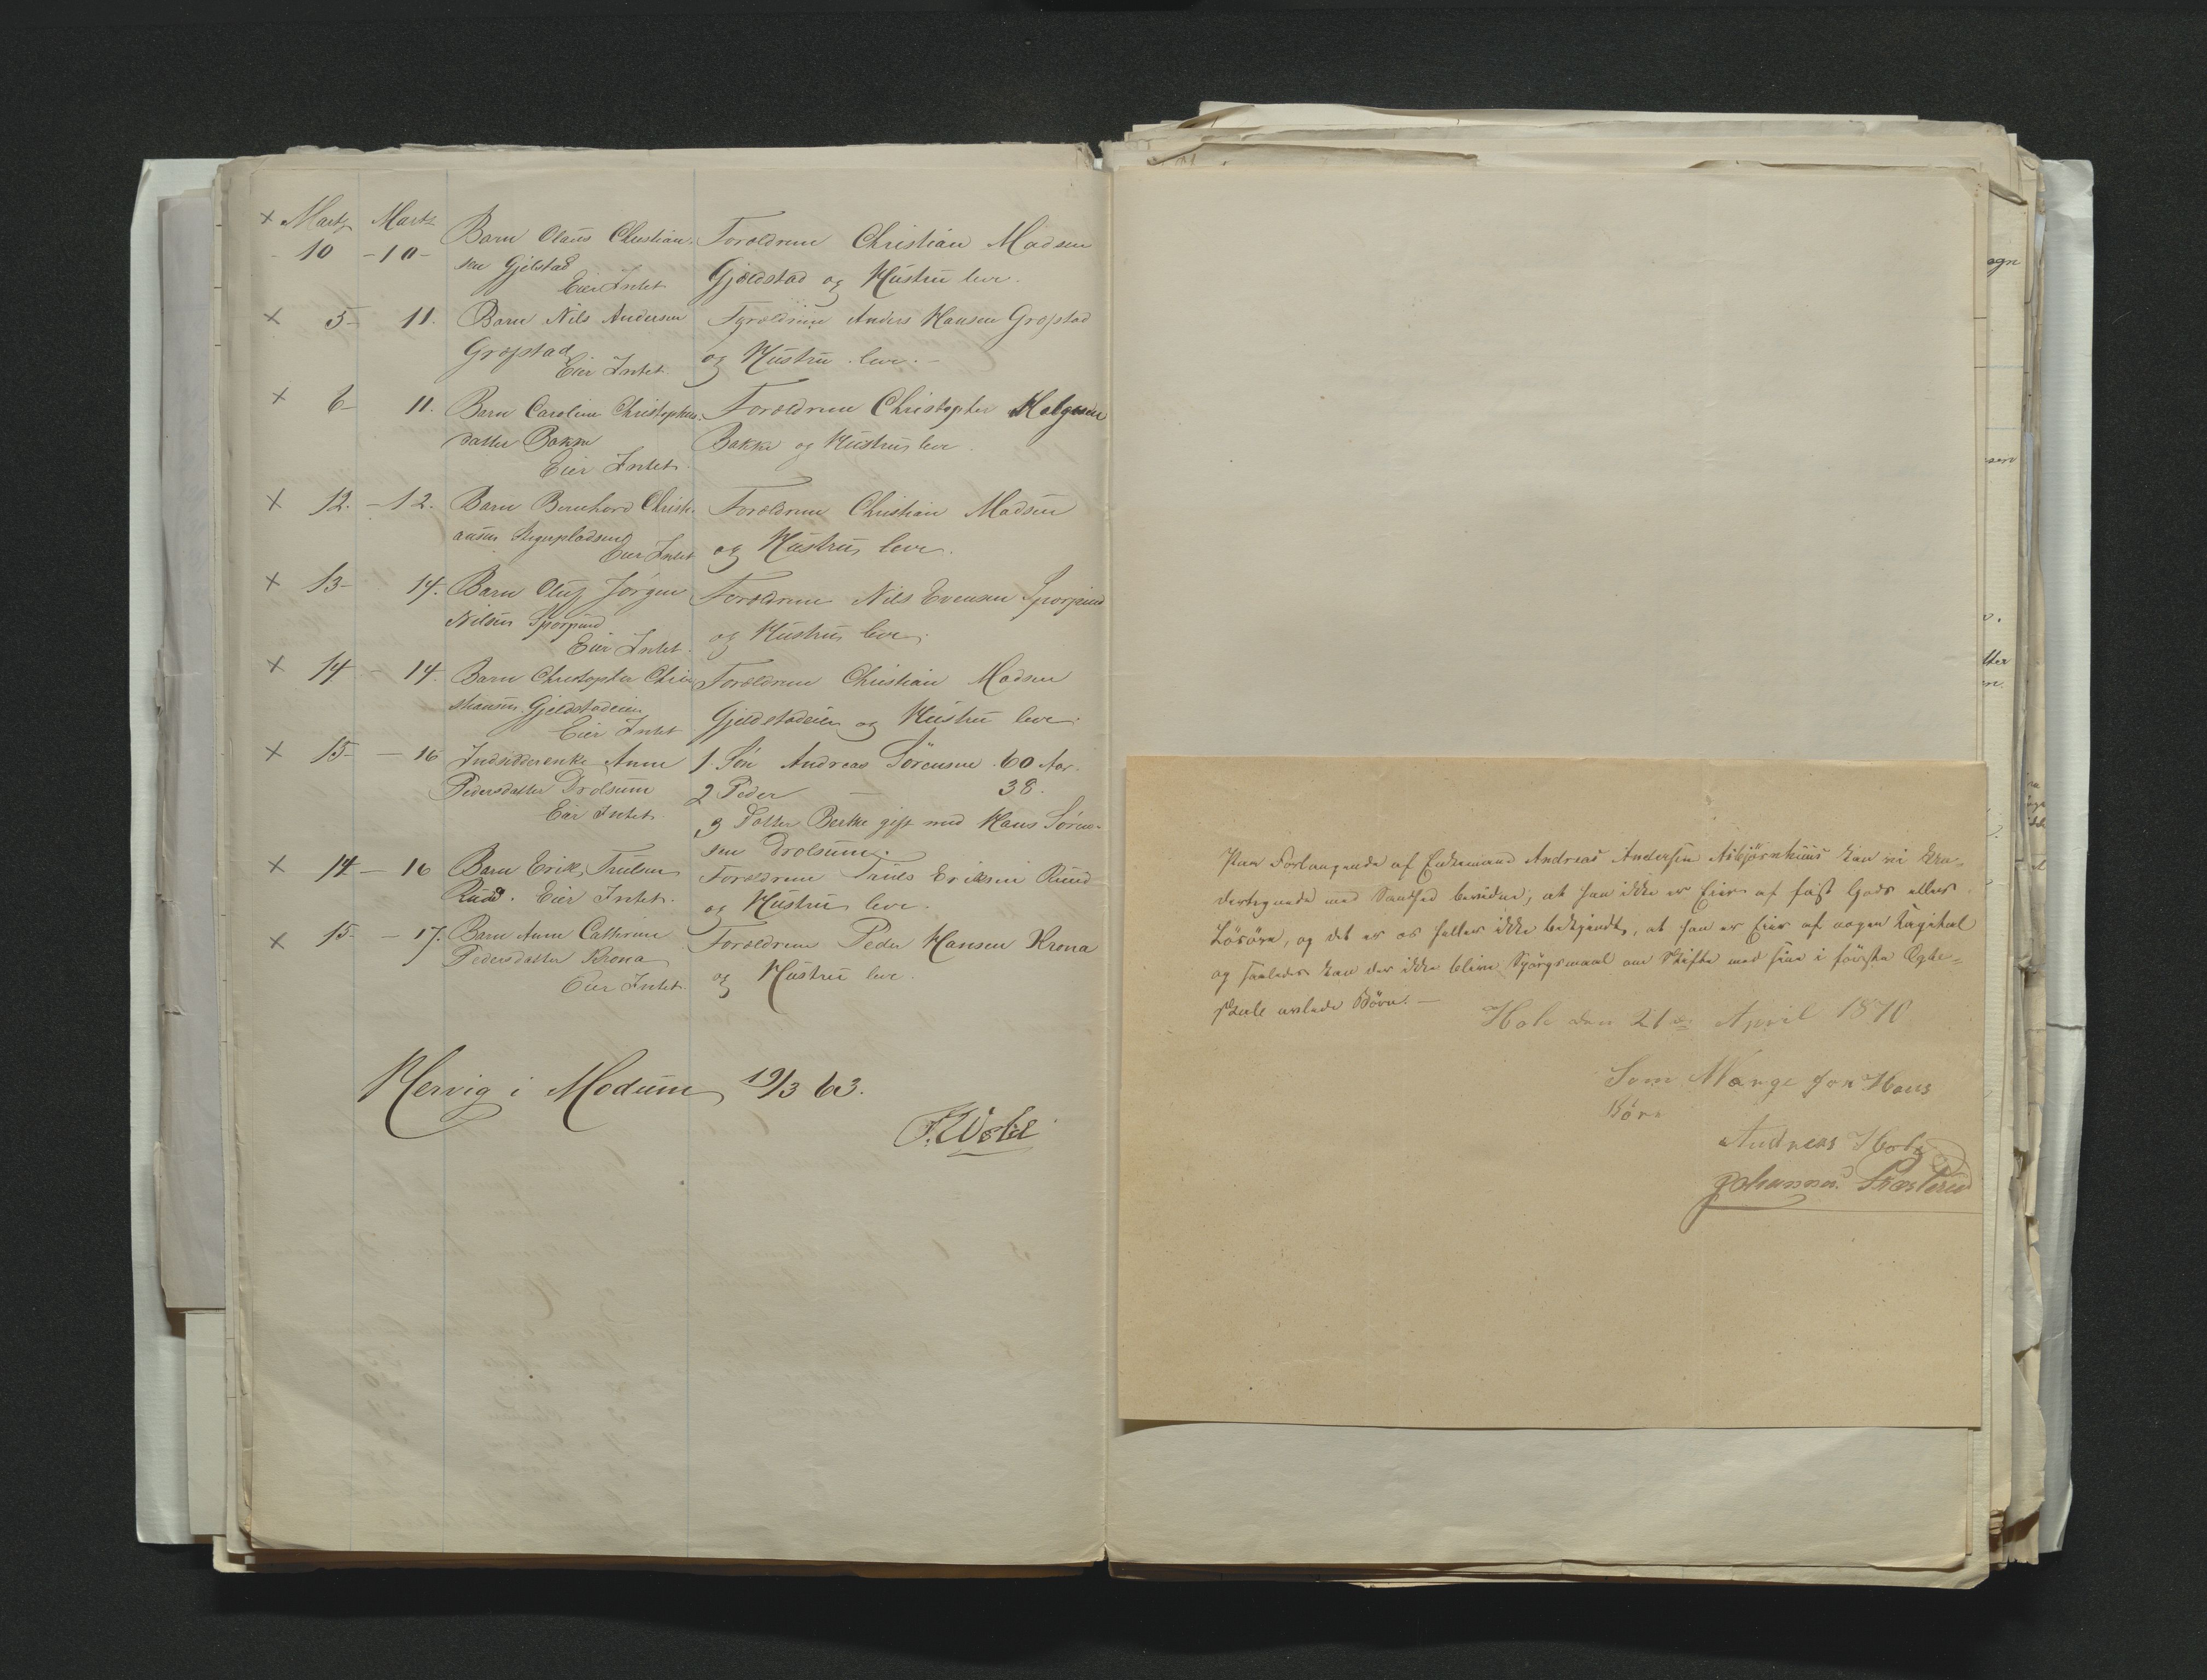 × Marts Marts Barn Olaus Christian- Forældrene Christian Madsen
10 - 10 - sen Gjelstad Gjeldstad og Hustru leve.
Eier Intet
× 5 - 11. Barn Nils Andersen Forældrene Anders Hansen Gropstad
Gropstad og Hustru leve. -
Eier Intet.
× 6 - 11. Barn Caroline Christophers- Forældrene Christopher Helgesen
datter Bakke Bakke og Hustru leve.
Eier Intet.
× 12. - 12. Barn Bernhard Christi- Forældrene Christian Madsen
ansen og Hustru leve.
Eier Intet
× 13 - 14. Barn Oluf Jørgen Forældrene Nils Evensen
Nilsen og Hustru leve.
Eier Intet.
× 14 - 14. Barn Christopher Chri- Forældrene Christian Madsen
stiansen Gjeldstadeien Gjeldstadeien og Hustru leve.
Eier Intet
× 15 - 16 Indsidderenke Anne 1. Søn Andreas Sörensen 60 Aar.
Pedersdatter Drolsum 2 Peder — 38.
Eier Intet. 3 Datter Berthe gift med Hans Sören-
sen Drolsum.
× 14 - 16 Barn Erik Trulsen Forældrene Truls Eriksen Ruud
Ruud. Eier Intet. og Hustru leve.
× 15 - 17. Barn Anne Cathrine Forældrene Peder Hansen Krona
Pedersdatter Krona og Hustru leve.
Eier Intet.
Hervig i Modum 19/3 63.
Paa Forlangende af Enkemand Andreas Andersen Asbjørnhuus kan vi Un-
dertegnede med Sandhed bevidne, at han ikke er Eier af fast Gods eller
Løsøre, og det er os heller ikke bekjendt, at han er Eier af nogen Kapital
og saaledes kan der ikke blive Spørgsmaal om Skifte med sine i første Ægte-
skab avlede Børn. -
Hole den 21de April 1870
Som Værge for Hans
Børn
Andreas
Johannes